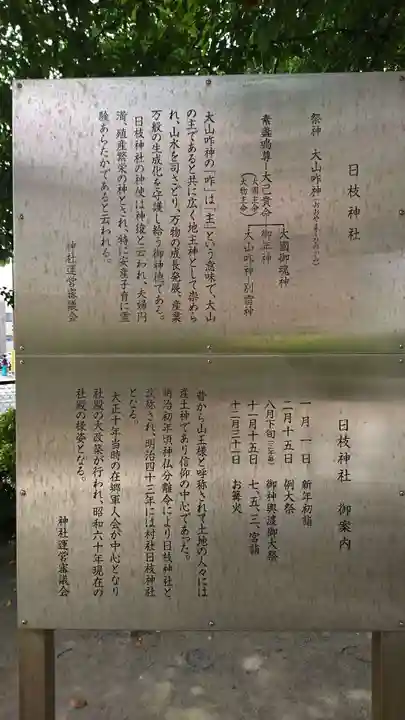 日枝神社
祭神 大山咋神(おおやまくひのかみ)
大国御魂神
素盞嗚尊─大己貴命 御年神
(大国主命 大物主命) 大山咋神・別雷神
大山咋神の「咋」は「主」という意味で、大山
の主であると共に広く地主神として崇めら
れ、山水を司さどり、万物の成長発展、産業
万般の生成化を守護し給う御神徳である。
日枝神社の神使は神猿と云われ、夫婦円
満、殖産繁栄の神とされ、特に安産子育に霊
験あらたかであると云われる。
神社運営審議会
日枝神社 御案内
一月一日 新年初詣
二月十五日 例大祭
八月下旬(三年毎) 御神輿渡御大祭
十一月十五日 七、五、三、宮詣
十二月三十一日 お篝火
昔から山王様と呼称されて土地の人々には
産土神であり信仰の中心であった。
明治初年頃神仏分離令により日枝神社と
改称され、明治四十三年には村社日枝神社
となる。
大正十年当時の在郷軍人会が中心となり
社殿の大改築が行われ、昭和六十年現在の
社殿の様姿となる。
神社運営審議会